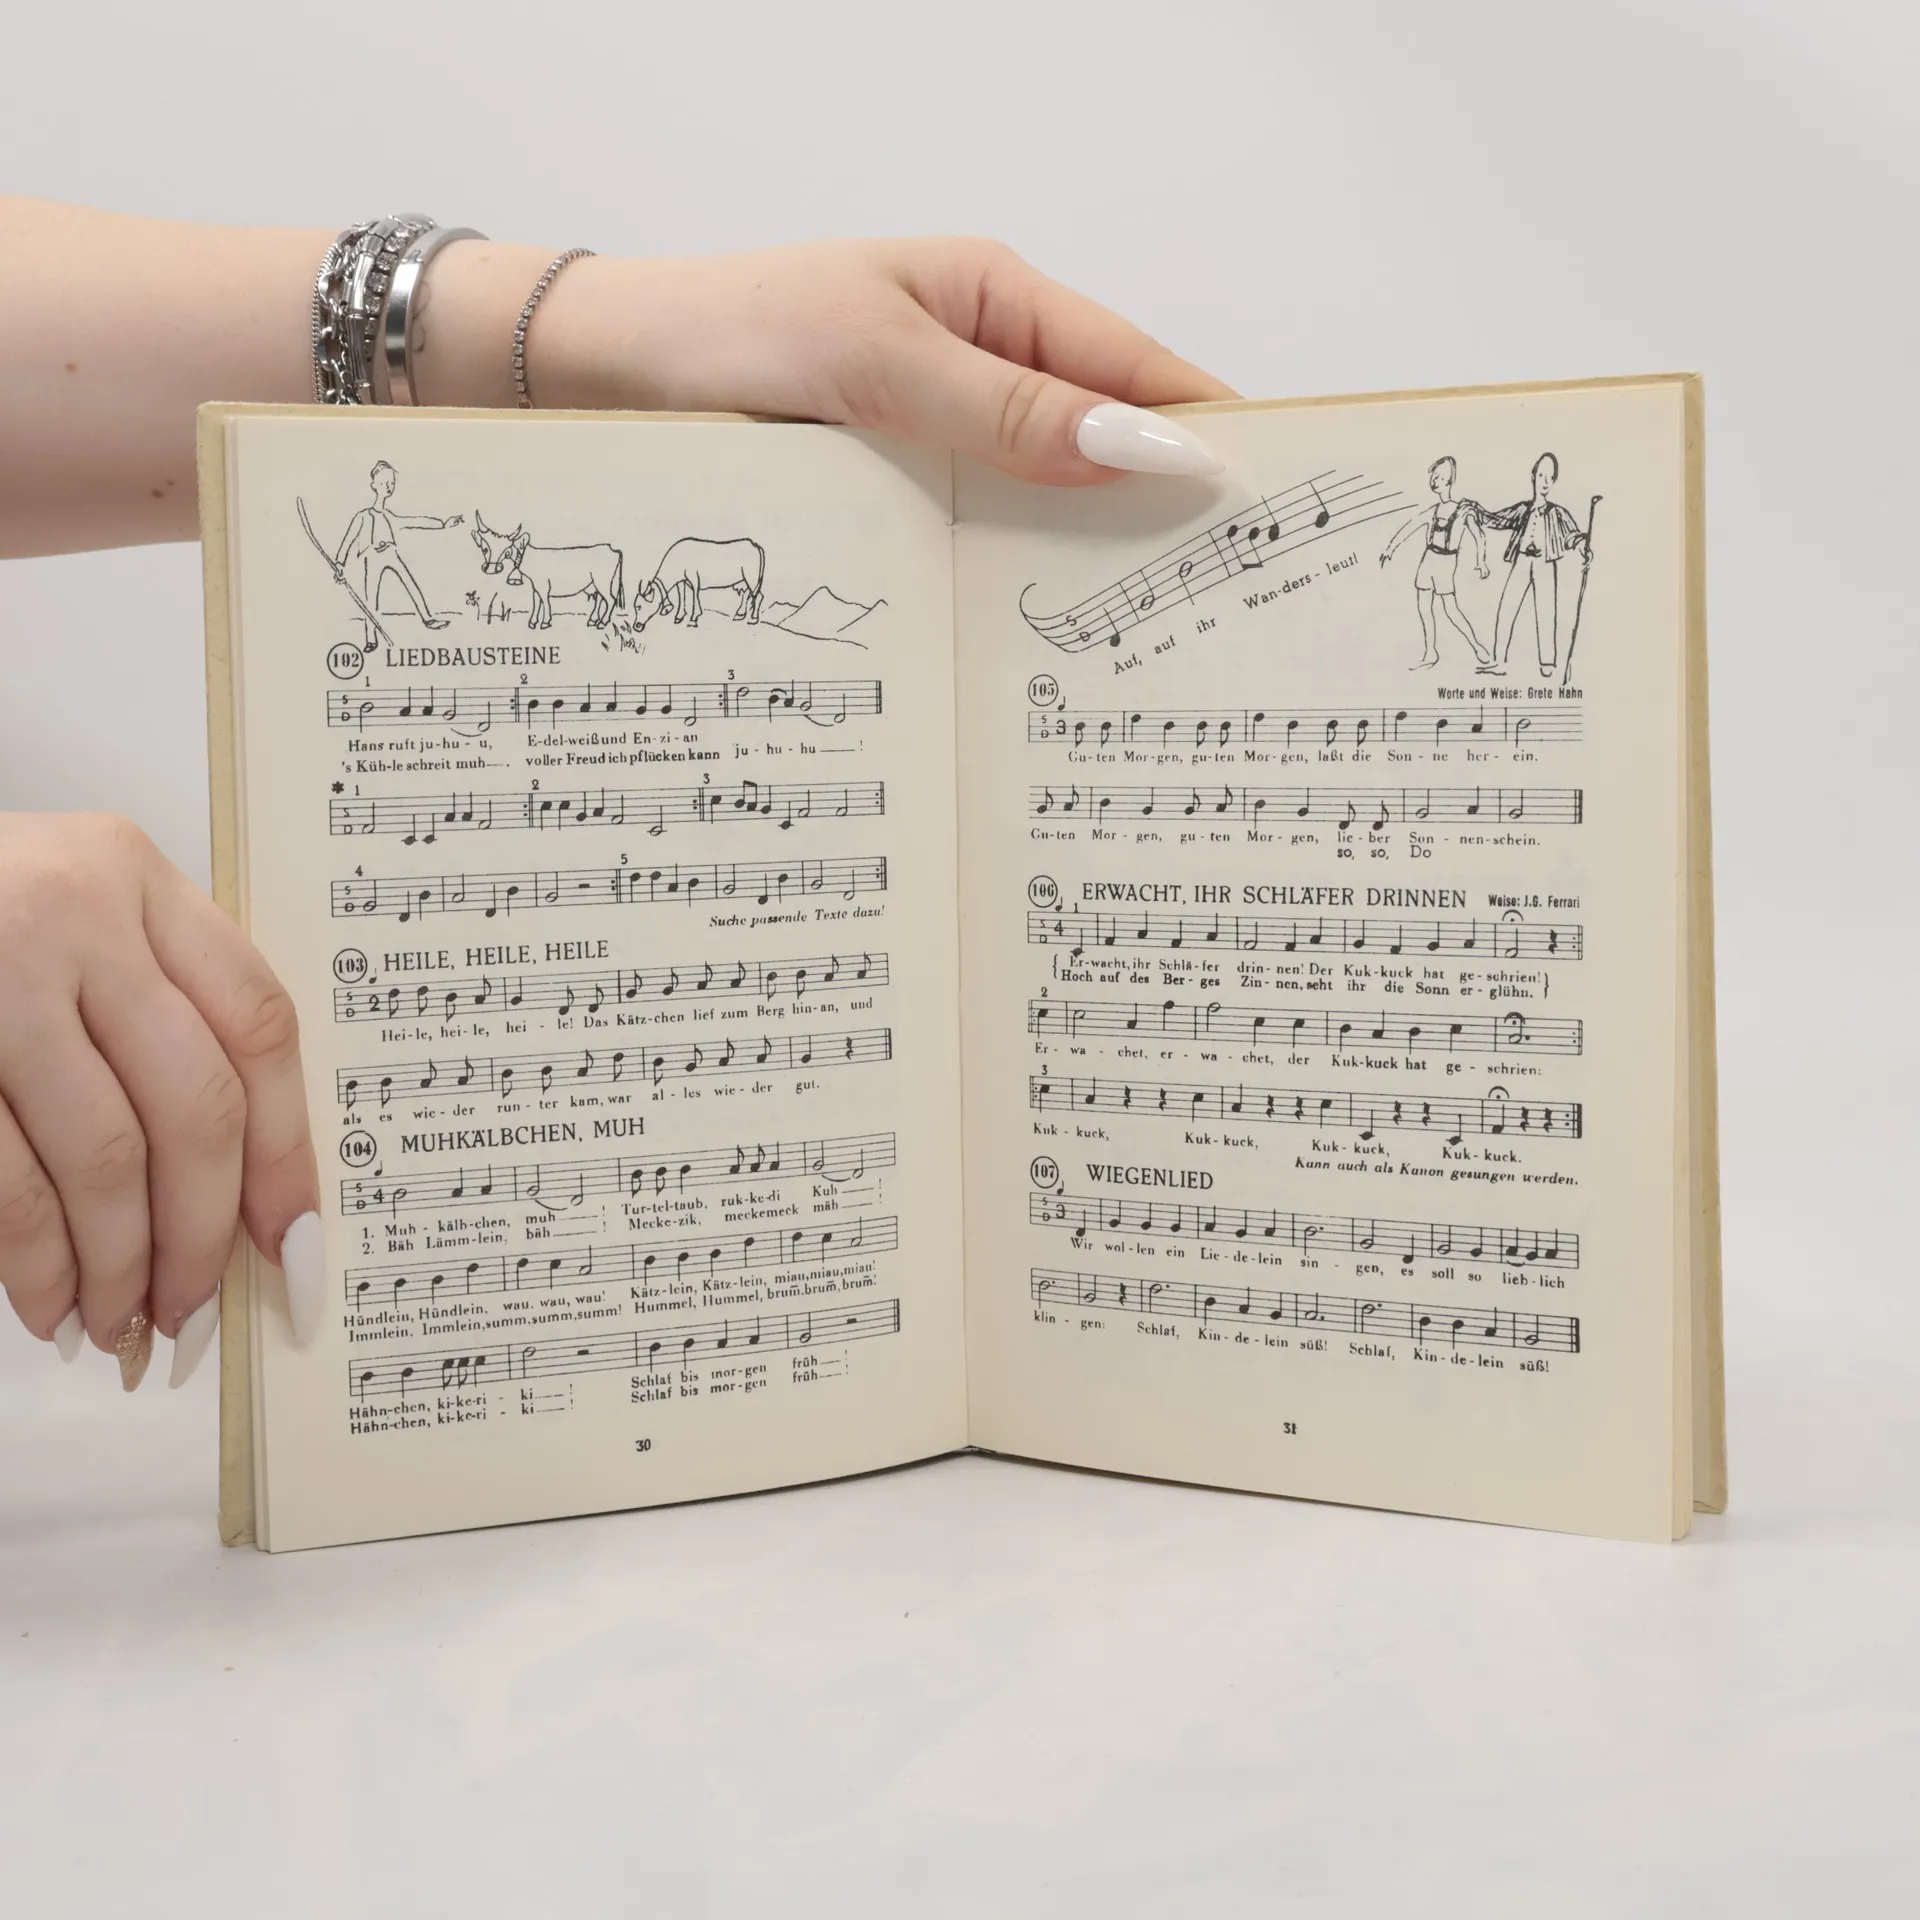 102 LIEDBAUSTEINE
1 2 3
Hans ruft ju-hu - u, E-del-weiß und En-zi-an
's Küh-le schreit muh—. voller Freud ich pflücken kann ju - hu - hu —!
* 1 2 3
4 5
Suche passende Texte dazu!
103 HEILE, HEILE, HEILE
2
Hei-le, hei-le, hei - le! Das Kätz-chen lief zum Berg hin-an, und
als es wie-der run-ter kam, war al-les wie-der gut.
104 MUHKÄLBCHEN, MUH
4
1. Muh - kälb-chen, muh—! Tur-tel-taub, ruk-ke-di Kuh—!
2. Bäh Lämm-lein, bäh—! Mecke-zik, meckemeck mäh—!
Hündlein, Hündlein, wau, wau, wau! Kätz-lein, Kätz-lein, miau, miau, miau!
Immlein, Immlein, summ, summ, summ! Hummel, Hummel, brum̄, brum̄, brum̄!
Hähn-chen, ki-ke-ri - ki—! Schlaf bis mor-gen früh—!
Hähn-chen, ki-ke-ri - ki—! Schlaf bis mor-gen früh—!
30
Auf, auf ihr Wan-ders-leut!
105 Worte und Weise: Grete Hahn
3
Gu-ten Mor-gen, gu-ten Mor-gen, laßt die Son - ne her - ein.
Gu-ten Mor - gen, gu - ten Mor - gen, lie - ber Son - nen-schein.
so, so, Do
106 ERWACHT, IHR SCHLÄFER DRINNEN Weise: J.G. Ferrari
1
4
Er-wacht, ihr Schlä-fer drin-nen! Der Kuk-kuck hat ge-schrien!
Hoch auf des Ber-ges Zin-nen, seht ihr die Sonn er-glühn.
2
Er - wa - chet, er - wa - chet, der Kuk-kuck hat ge - schrien:
3
Kuk - kuck, Kuk-kuck, Kuk-kuck, Kuk-kuck.
Kann auch als Kanon gesungen werden.
107 WIEGENLIED
3
Wir wol-len ein Lie-de-lein sin - gen, es soll so lieb-lich
klin - gen: Schlaf, Kin-de-lein süß! Schlaf, Kin-de-lein süß!
31